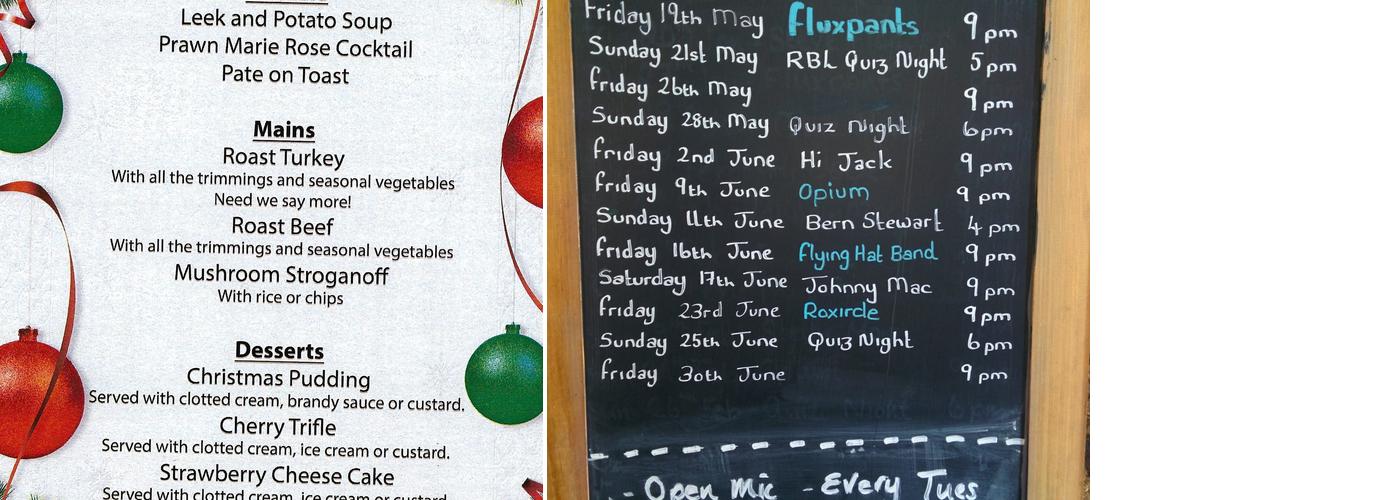 Leek and Potato Soup
Prawn Marie Rose Cocktail
Pate on Toast
Mains
Roast Turkey
With all the trimmings and seasonal vegetables
Need we say more!
Roast Beef
With all the trimmings and seasonal vegetables
Mushroom Stroganoff
With rice or chips
Desserts
Christmas Pudding
Served with clotted cream, brandy sauce or custard.
Cherry Trifle
Served with clotted cream, ice cream or custard.
Strawberry Cheese Cake
Served with clotted cream, ice cream or custard
Friday 19th May Fluxpants 9pm
Sunday 21st May RBL Quiz Night 5pm
Friday 26th May 9pm
Sunday 28th May Quiz Night 6pm
Friday 2nd June Hi Jack 9pm
Friday 9th June Opium 9pm
Sunday 11th June Bern Stewart 4pm
Friday 16th June Flying Hat Band 9pm
Saturday 17th June Johnny Mac 9pm
Friday 23rd June Roxircle 9pm
Sunday 25th June Quiz Night 6pm
Friday 30th June 9pm
- Open Mic - Every Tues